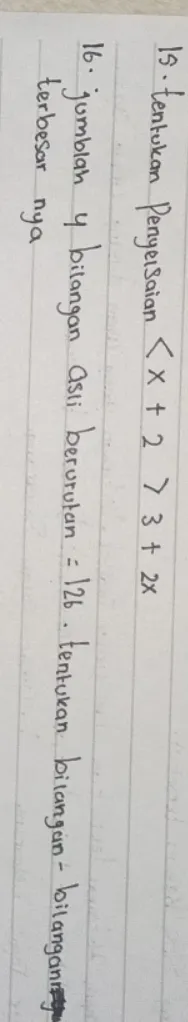 15. tentukan Penyelsaian < x + 2 > 3 + 2x
16. jumblah 4 bilangan asli berurutan = 126. tentukan bilangan - bilangan
terbesar nya